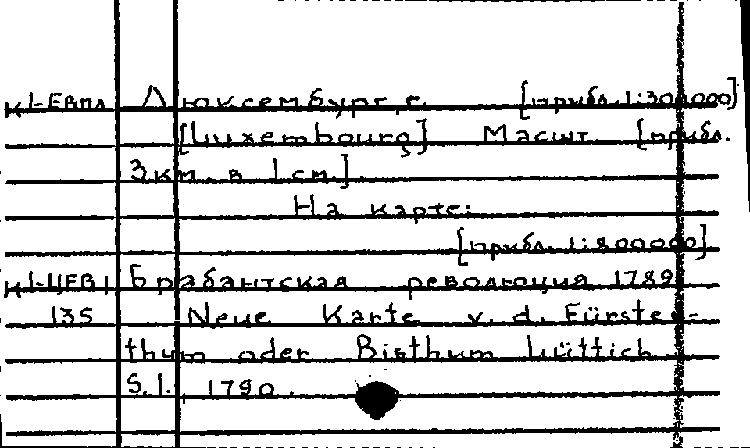 к1-ЕВПЛ Люксембург, г. [прибл. 1:300000]
[Luxembourg] Масшт. [прибл.
3 км в 1 см]
На карте:
[прибл. 1:800000]
к1-ЦЕВ1 Брабантская революция 1789
135 Neue Karte v. d. Fürsten-
thum oder Bisthum Lüttich
S.l., 1790.